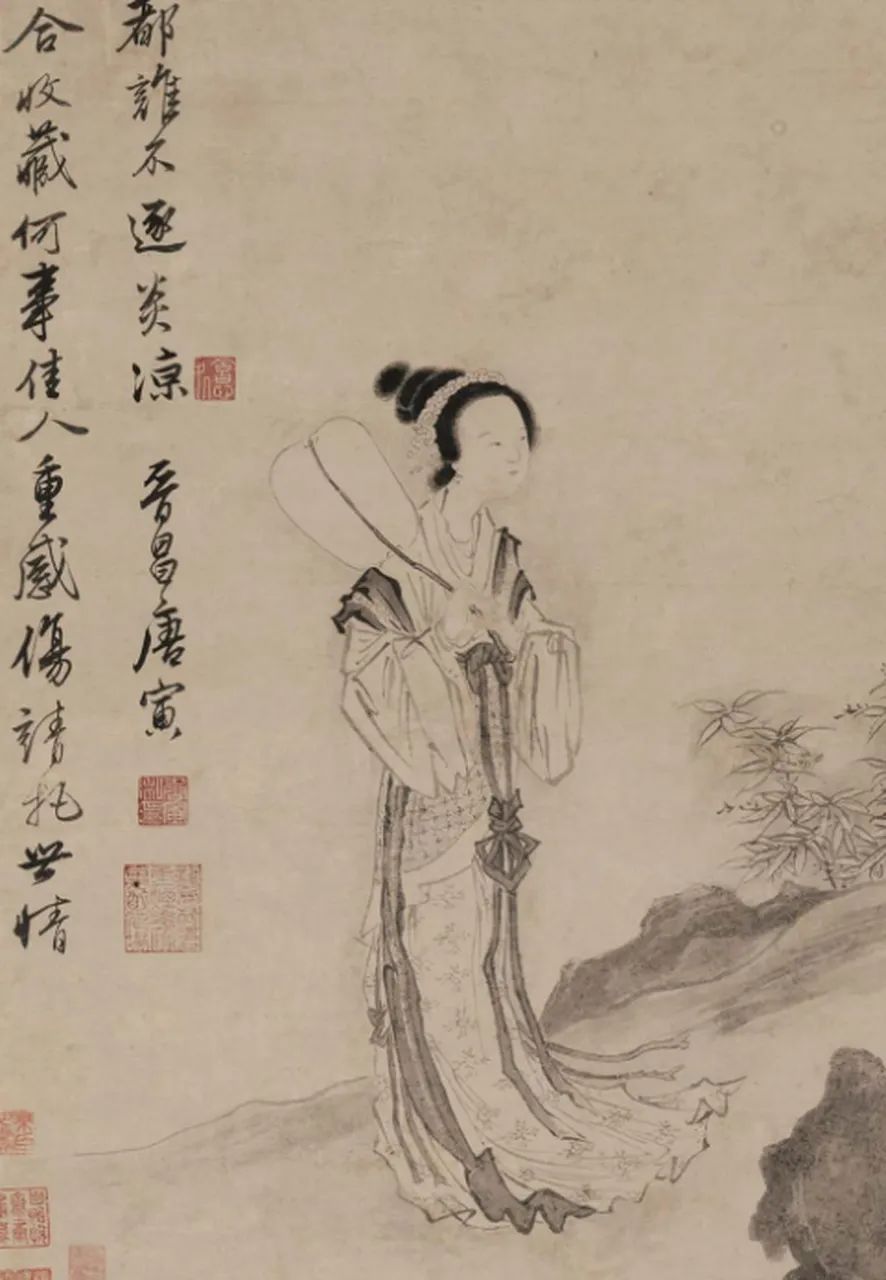 合收藏何事佳人重感傷請把世情
都誰不逐炎涼 晉昌唐寅